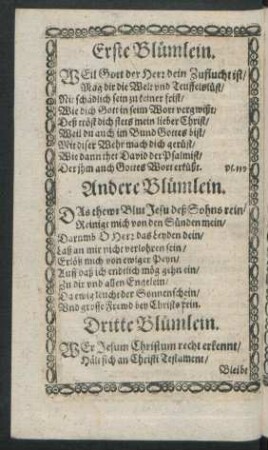 Erste Blümlein.
WEil Gott der Herr dein Zuflucht ist/
Mag dir die Welt vnd Teuffelslüst/
Nit schädlich sein zu keiner frist/
Wie dich Gott in seim Wort vergwißt/
Deß tröst dich stets mein lieber Christ/
Weil du auch im Bund Gottes bist/
Mit diser Wehr mach dich gerüst/
Wie dann thet David der Psalmist/
Der jhm auch Gottes Wort erküßt.
Andere Blümlein.
DAs thewr Blut Jesu deß Sohns rein/
Reinigt mich von den Sünden mein/
Darumb O Herr das Leyden dein/
Laß an mir nicht verlohren sein/
Erlöß mich von ewiger Peyn/
Auff daß ich endtlich mög gehn ein/
Zu dir vnd allen Engelein/
Da ewig leucht der Sonnenschein/
Vnd grosse Frewd bey Christo rein.
Dritte Blümlein.
WEr Jesum Christum recht erkennt/
Hält sich an Christi Testament/
Bleibt